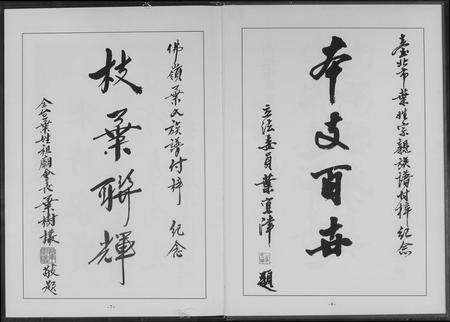 臺北市葉姓宗親族譜付梓紀念
本支百世
立法委員葉憲津
題
佛嶺葉氏族譜付梓 紀念
枝葉聯輝
全台葉姓祖廟會長葉樹
敬題